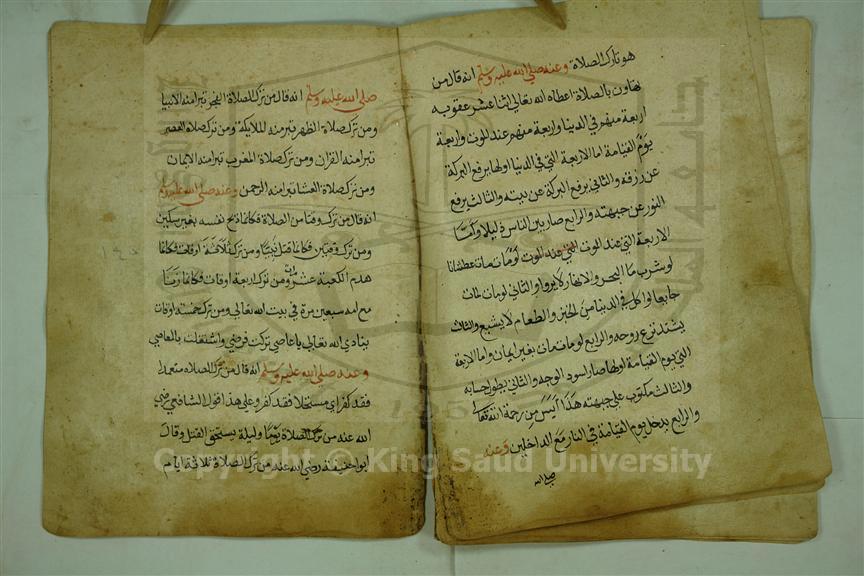 هو تارك الصلاة وعنه صلى الله عليه وسلم انه قال من
تهاون بالصلاة اعطاه الله تعالى اثنا عشر عقوبه
اربعة منهم في الدنيا واربعة منهم عند الموت واربعة
يوم القيامة اما الاربعة التي في الدنيا اولها يرفع البركة
عن رزقه والثاني يرفع البركة عن بيته والثالث يرفع
النور عن جبهته والرابع صار بين الناس ليلا واما
الاربعة التي عند الموت لو مات مات عطشانا
لو شرب ماء البحر والانهار لا يروا والثاني لو مات مات
جايعا ولو اكل في الدنيا من الخبز والطعام لا يشبع والثالث
يشتد نزع روحه والرابع لو مات مات بغير ايمان واما الاربعة
التي يوم القيامة اولها صار اسود الوجه والثاني يطول حسابه
والثالث مكتوب على جبهته هذا آيس من رحمة الله تعالى
والرابع يدخل يوم القيامة في النار مع الداخلين وعنه
صلى الله
صلى الله عليه وسلم انه قال من ترك الصلاة الفجر تبرا منه الانبيا
ومن ترك صلاة الظهر تبر منه الملايكة ومن ترك صلاة العصر
تبرا منه القران ومن ترك صلاة المغرب تبرا منه الايمان
ومن ترك صلاة العشا تبرا منه الرحمن وعنه صلى الله عليه وسلم
انه قال من ترك وقتا من الصلاة فكانما ذبح نفسه بغير سكين
ومن ترك وقتين فكانما قتل نبيا ومن ترك ثلاثة اوقات فكانما
هدم الكعبة عشر مرات ومن ترك اربعة اوقات فكانما زنا
مع امه سبعين مرة في بيت الله تعالى ومن ترك خمسة اوقات
ينادي الله تعالى يا عاصي تركت فرضي واشتغلت بالمعاصي
وعنه صلى الله عليه وسلم انه قال من ترك الصلاه متعمدا
فقد كفر اي مستحلا فقد كفر وعلى هذا اقول الشافعي رضي
الله عنه من ترك الصلاة يوما وليلة يستحق القتل وقال
ابوا حنيفة رضي الله عنه من ترك الصلاة ثلاثة ايام
Copyright © King Saud University